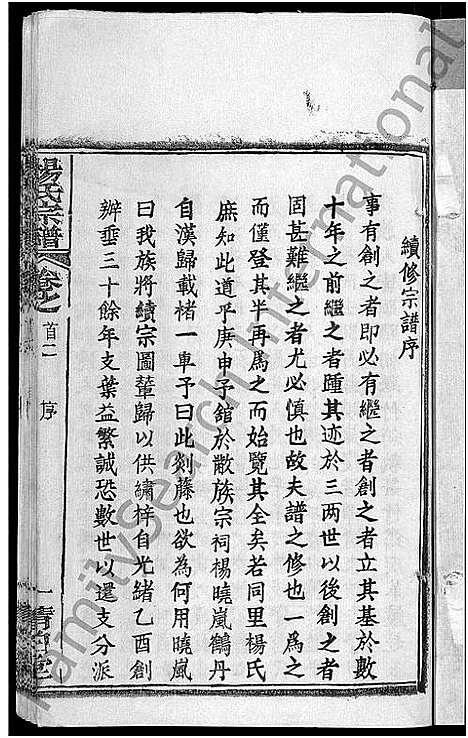 續修宗譜序
事有創之者即必有繼之者創之者立其基於數
十年之前繼之者踵其迹於三兩世以後創之者
固甚難繼之者尤必慎也故夫譜之修也一為之
而僅登其半再為之而始覽其全矣若同里楊氏
庶知此道乎庚申予館於散族宗祠楊曉嵐鶴丹
自漢歸載楮一車予曰此剡藤也欲為何用曉嵐
曰我族將續宗圖輦歸以供繡梓自光緒乙酉創
辦垂三十餘年支葉益繁誠恐數世以還支分派
楊氏宗譜 卷之首二 序 一 清白堂
FamilySearch International